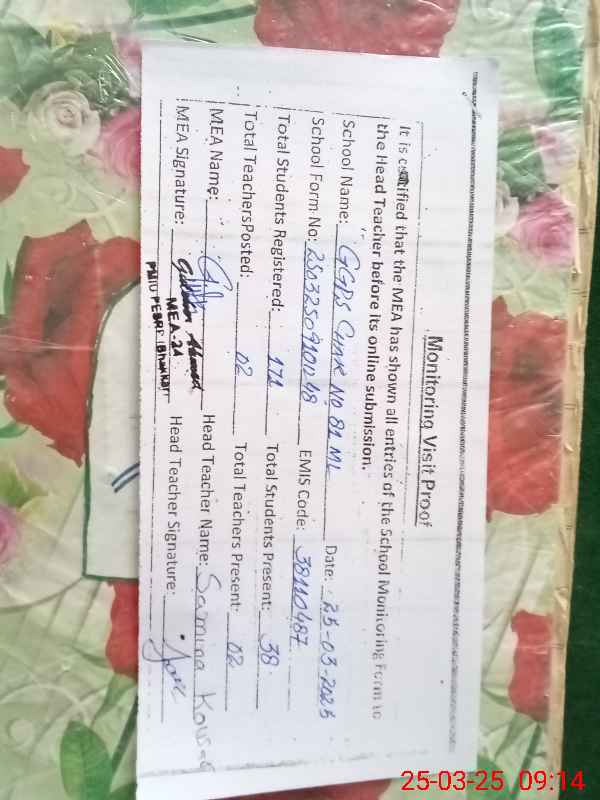 Monitoring Visit Proof
It is certified that the MEA has shown all entries of the School Monitoring Form to
the Head Teacher before its online submission.
School Name: GGPS CHAK NO 81 ML Date: 25-03-2025
School Form No: EMIS Code: 38110487
Total Students Registered: 171 Total Students Present: 38
Total Teachers Posted: 02 Total Teachers Present: 02
MEA Name: Head Teacher Name: Samina Kousar
MEA Signature: Head Teacher Signature:
MEA-24
PMIU PESRP Bhakkar
25-03-25 09:14